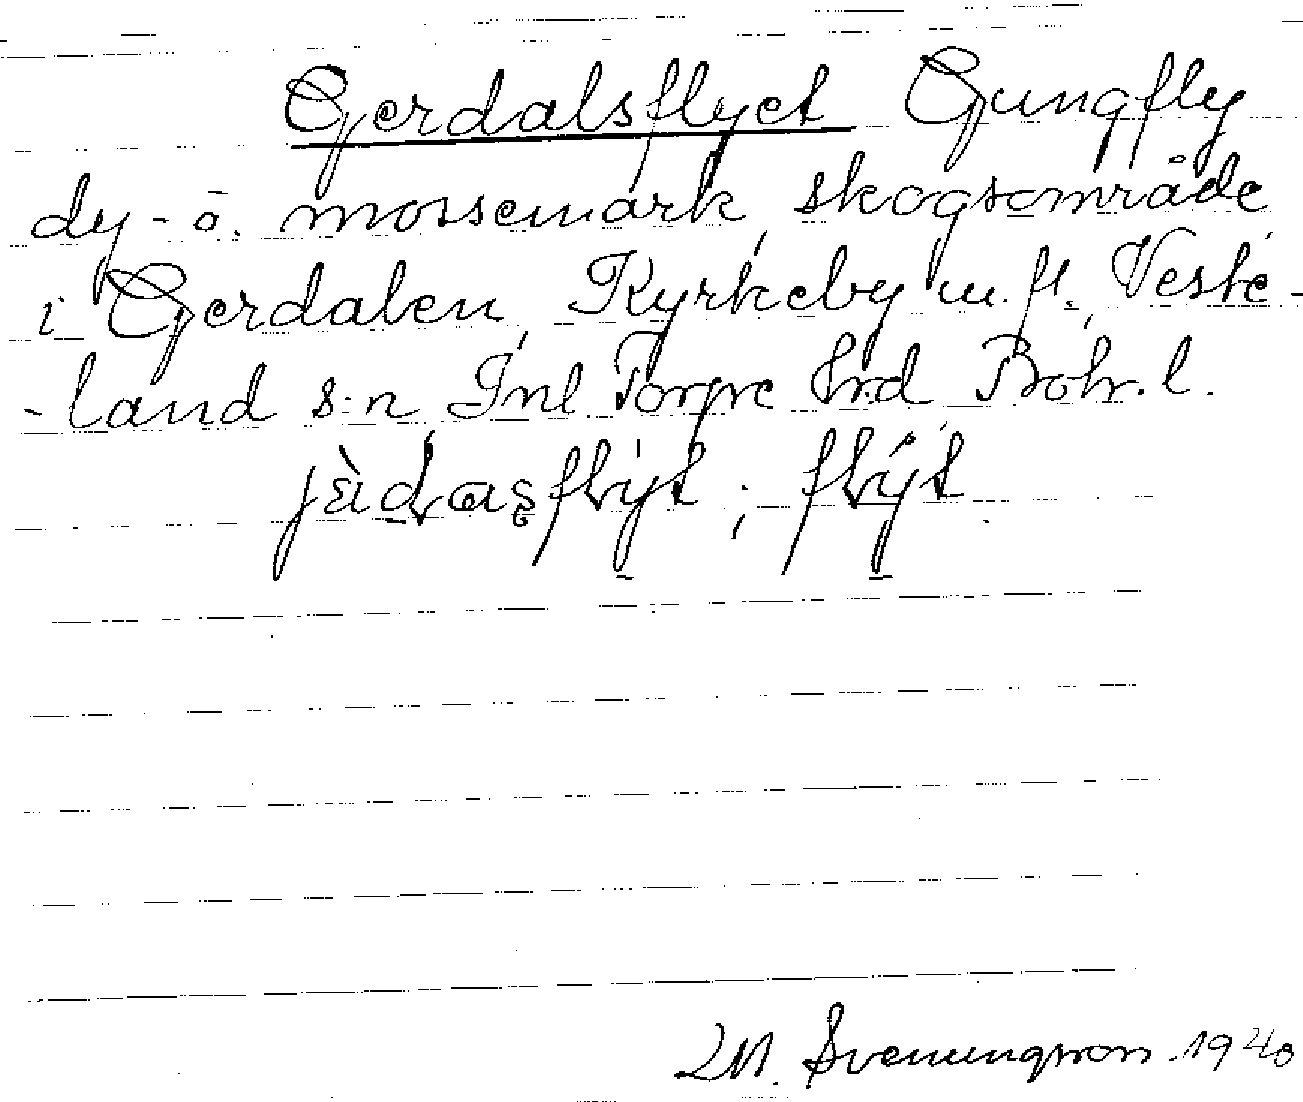 Gerdalsflyet Gungfly
dy- o. mossemark, skogsområde
i Gerdalen, Kyrkeby m. fl., Veste-
-land s:n Inl Torpe Hrd Boh. l.
flýt
M. Svenungsson 1940